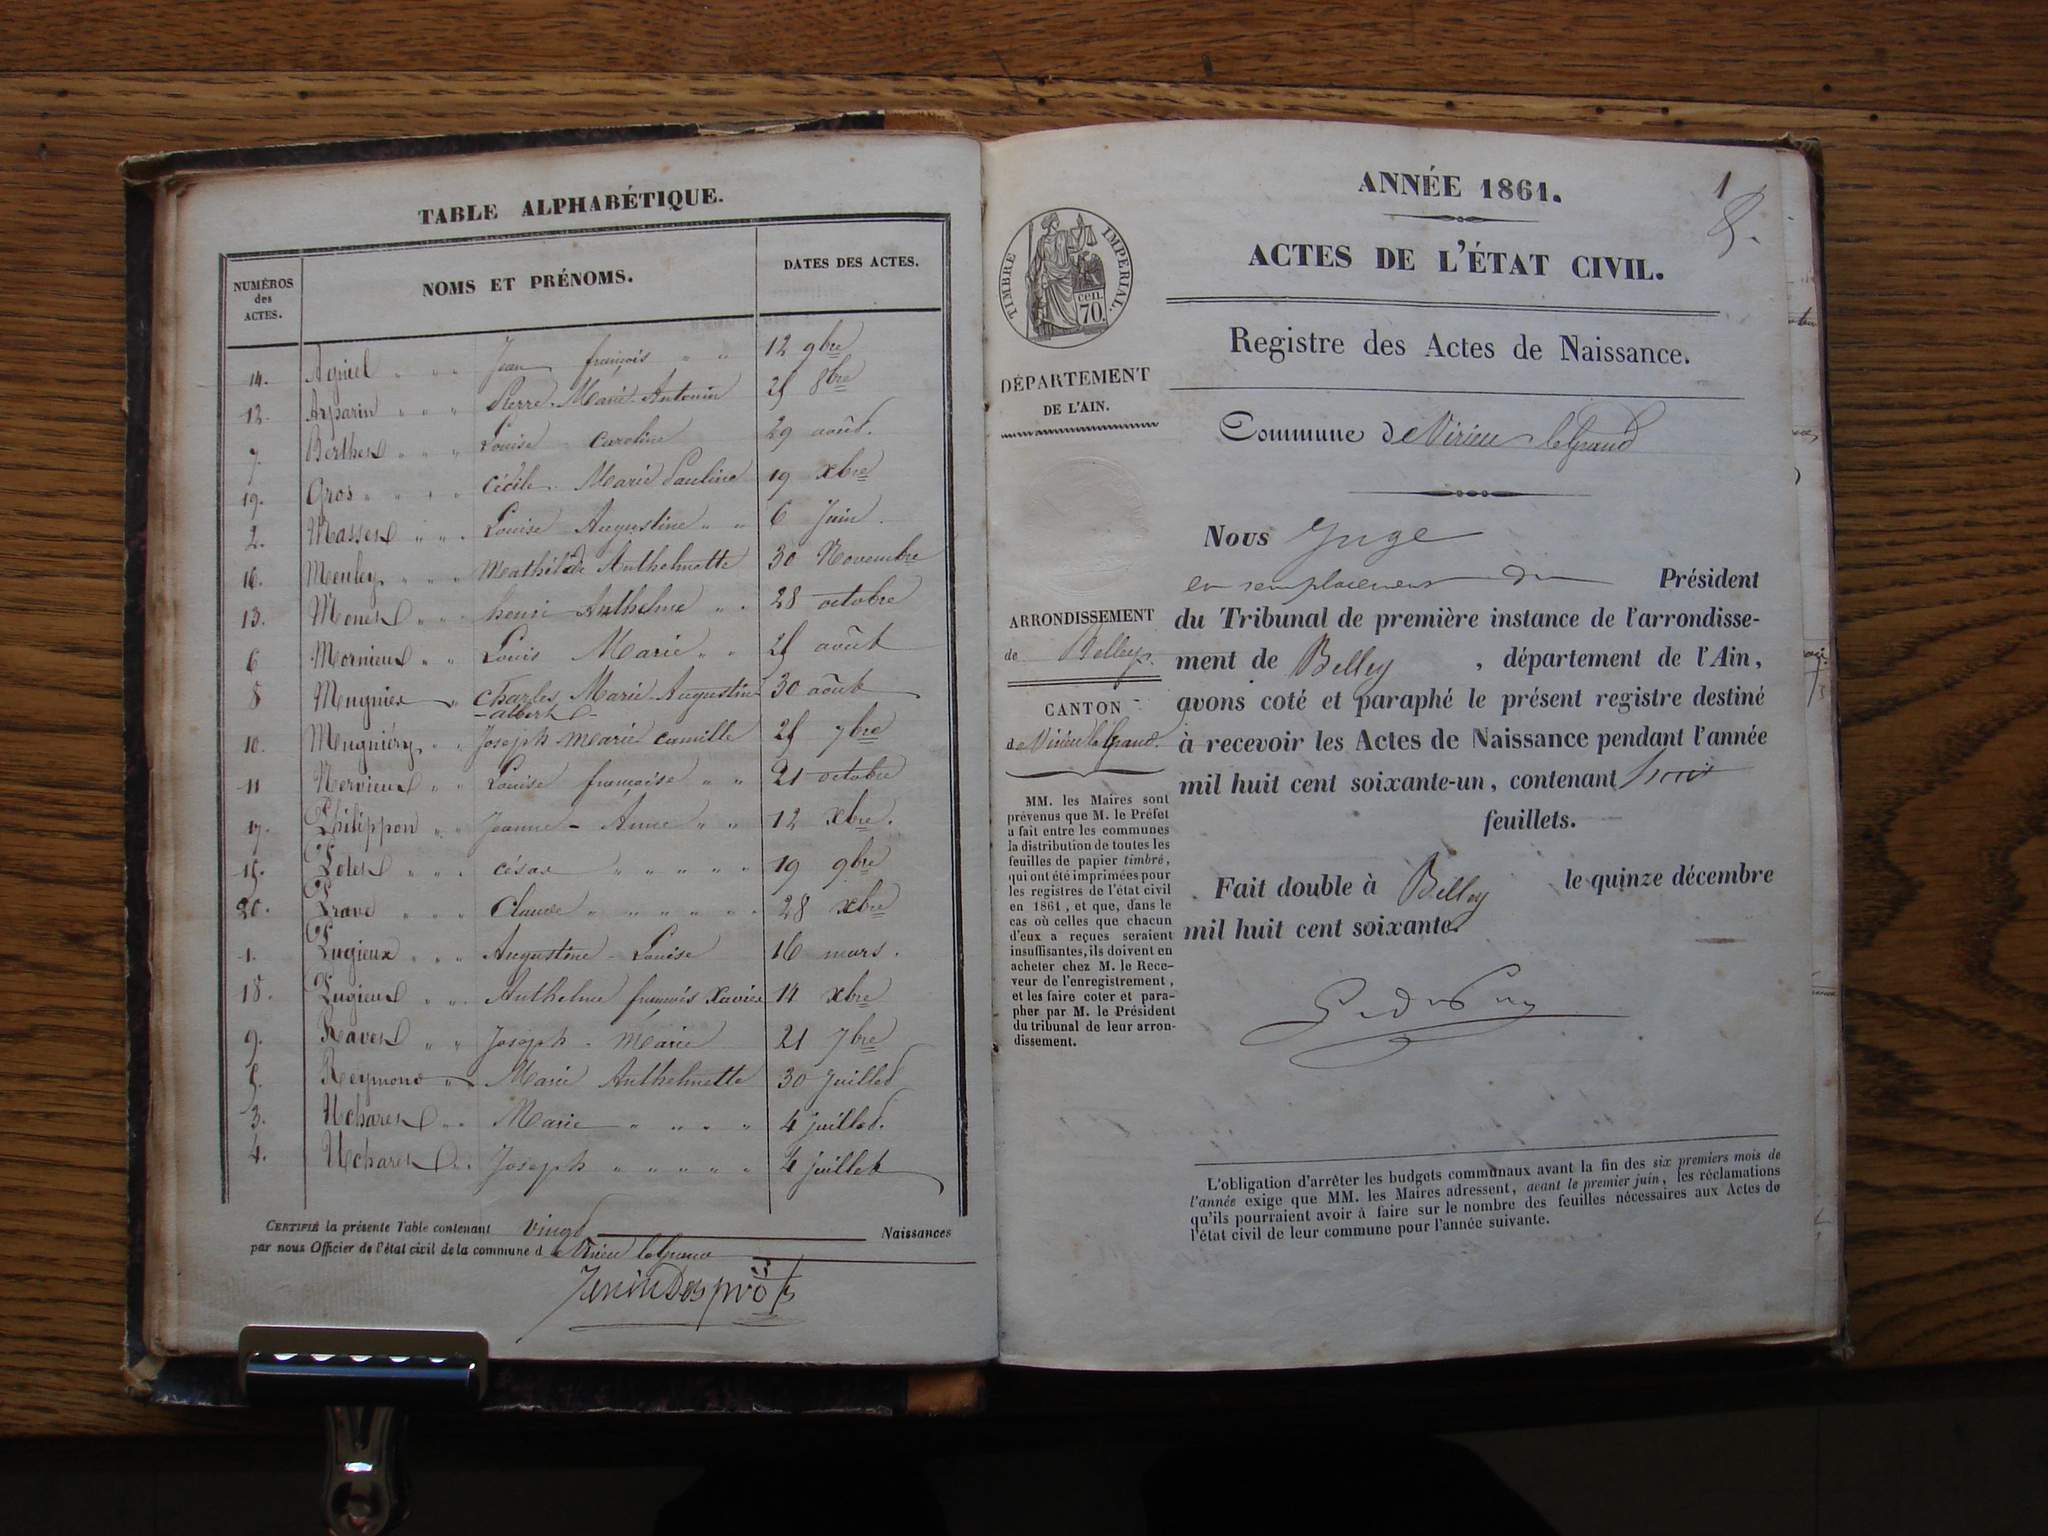 TABLE ALPHABÉTIQUE.
NUMÉROS
des
ACTES.
NOMS ET PRÉNOMS.
DATES DES ACTES.
14. Agniel " " " Jean françois " " 12 9bre
12. Arparin " " " Pierre Marie Antonin 25 8bre
7. Berthet " " " Louise Caroline 29 août.
19. Gros " " " " Cécile Marie Pauline 19 xbre
2. Masset " " " Louise Augustine " " 6 Juin
16. Menley " " " Mathilde Anthelmette 30 Novembre
13. Monet " " " henri Anthelme " " 28 octobre
6 Mornieux " " Louis Marie " " 25 août
8 Mugnier " Charles Marie Augustin 30 août
- albert -
10. Mugniéry " " Joseph Marie Camille 25 7bre
11 Nervieux " " Louise françoise " " 21 octobre
17. Philippon " " Jeanne - Anne " " 12 xbre.
15. Potet " " " César " " " " " 19 9bre
20. Pravé " " " Claude " " " " " " 28 xbre
1. Pugieux " " " Augustine - Louise 16 mars.
18. Pugieux " " Anthelme françois Xavier 14 xbre
9. Ravet " " Joseph - Marie 21 7bre
5. Reymond " " Marie Anthelmette 30 Juillet
3. Ucharet " " Marie " " " " 4 juillet.
4. Ucharet " " Joseph " " " " " 4 juillet
CERTIFIÉ la présente Table contenant vingt Naissances
par nous Officier de l'état civil de la commune de Virieu le Grand
1
ANNÉE 1861.
ACTES DE L'ÉTAT CIVIL.
TIMBRE IMPERIAL.
cen.
70.
Registre des Actes de Naissance.
DÉPARTEMENT
DE L'AIN.
Commune de Virieu le Grand
Nous Juge
en remplacement du Président
du Tribunal de première instance de l'arrondisse-
ment de Belley, département de l'Ain,
avons coté et paraphé le présent registre destiné
à recevoir les Actes de Naissance pendant l'année
mil huit cent soixante-un, contenant
feuillets.
Fait double à Belley le quinze décembre
mil huit cent soixante.
ARRONDISSEMENT
de Belley.
CANTON
de Virieu le Grand.
MM. les Maires sont
prévenus que M. le Préfet
a fait entre les communes
la distribution de toutes les
feuilles de papier timbré,
qui ont été imprimées pour
les registres de l'état civil
en 1861, et que, dans le
cas où celles que chacun
d'eux a reçues seraient
insuffisantes, ils doivent en
acheter chez M. le Rece-
veur de l'enregistrement,
et les faire coter et para-
pher par M. le Président
du tribunal de leur arron-
dissement.
L'obligation d'arrêter les budgets communaux avant la fin des six premiers mois de
l'année exige que MM. les Maires adressent, avant le premier juin, les réclamations
qu'ils pourraient avoir à faire sur le nombre des feuilles nécessaires aux Actes de
l'état civil de leur commune pour l'année suivante.